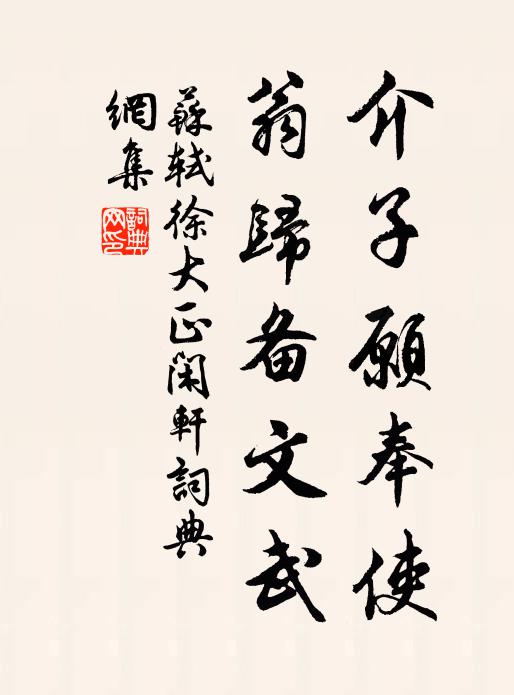 介子願奉使
翁歸备文武
蘇軾徐大正閑軒詞典
網集
詞典
网印